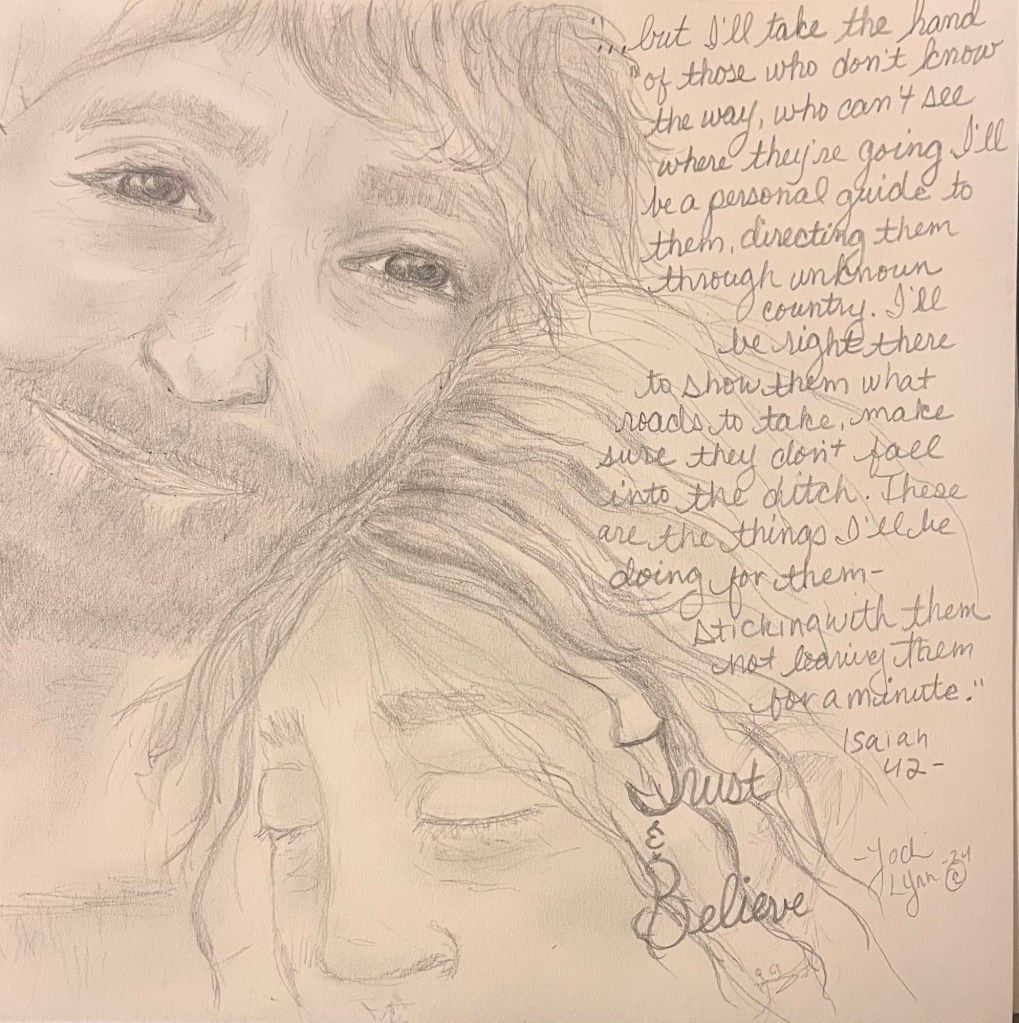 "...but I'll take the hand
of those who don't know
the way, who can't see
where they're going I'll
be a personal guide to
them, directing them
through unknown
country. I'll
be right there
to show them what
roads to take, make
sure they don't fall
into the ditch. These
are the things I'll be
doing for them-
sticking with them
not leaving them
for a minute."
Isaiah
42-
Trust
&
Believe
Lynn -24
©